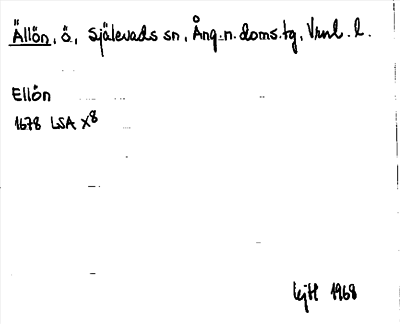 Ällön, ö, Själevads sn, Ång.n.doms.tg, Vrnl. l.
Ellön
1678 LSA X8
KjH 1968